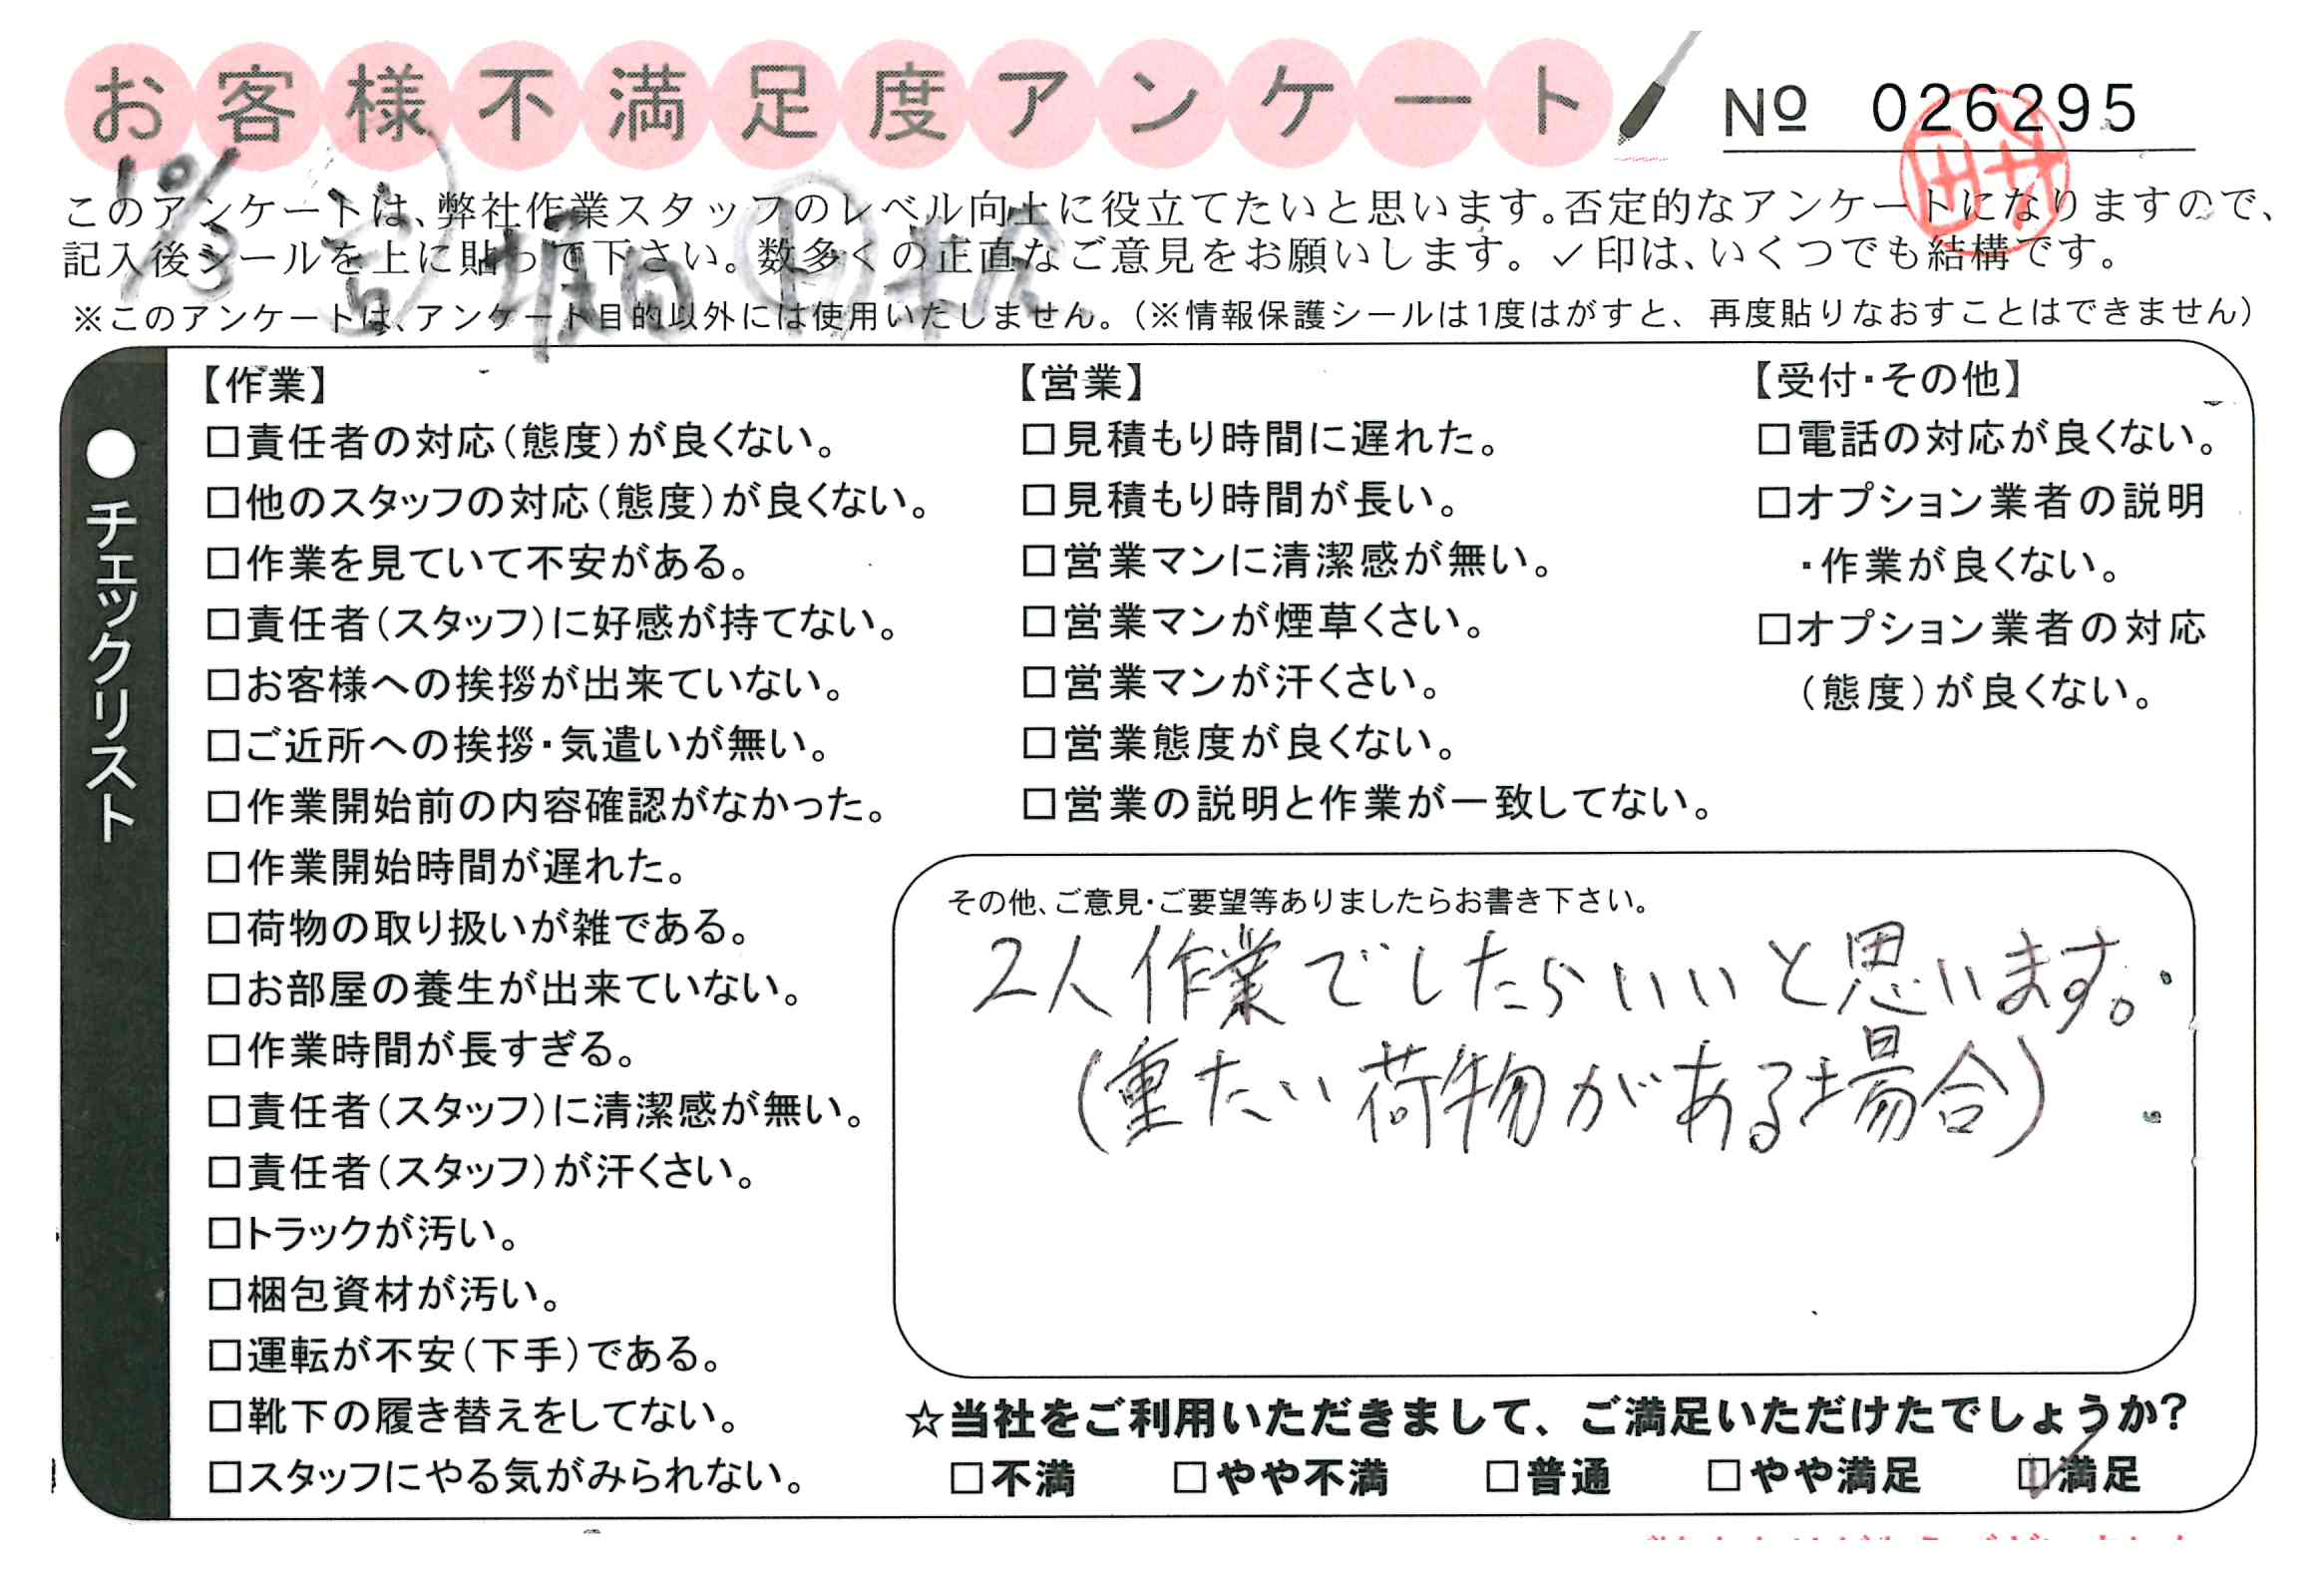 お客様不満足度アンケート
№ 026295
このアンケートは、弊社作業スタッフのレベル向上に役立てたいと思います。否定的なアンケートになりますので、
記入後シールを上に貼って下さい。数多くの正直なご意見をお願いします。✓印は、いくつでも結構です。
※このアンケートは、アンケート目的以外には使用いたしません。(※情報保護シールは1度はがすと、再度貼りなおすことはできません)
●チェックリスト
【作業】
□責任者の対応(態度)が良くない。
□他のスタッフの対応(態度)が良くない。
□作業を見ていて不安がある。
□責任者(スタッフ)に好感が持てない。
□お客様への挨拶が出来ていない。
□ご近所への挨拶・気遣いが無い。
□作業開始前の内容確認がなかった。
□作業開始時間が遅れた。
□荷物の取り扱いが雑である。
□お部屋の養生が出来ていない。
□作業時間が長すぎる。
□責任者(スタッフ)に清潔感が無い。
□責任者(スタッフ)が汗くさい。
□トラックが汚い。
□梱包資材が汚い。
□運転が不安(下手)である。
□靴下の履き替えをしてない。
□スタッフにやる気がみられない。
【営業】
□見積もり時間に遅れた。
□見積もり時間が長い。
□営業マンに清潔感が無い。
□営業マンが煙草くさい。
□営業マンが汗くさい。
□営業態度が良くない。
□営業の説明と作業が一致してない。
【受付・その他】
□電話の対応が良くない。
□オプション業者の説明
・作業が良くない。
□オプション業者の対応
(態度)が良くない。
その他、ご意見・ご要望等ありましたらお書き下さい。
2人作業でしたらいいと思います。
(重たい荷物がある場合)
☆当社をご利用いただきまして、ご満足いただけたでしょうか?
□不満 □やや不満 □普通 □やや満足 ☑満足